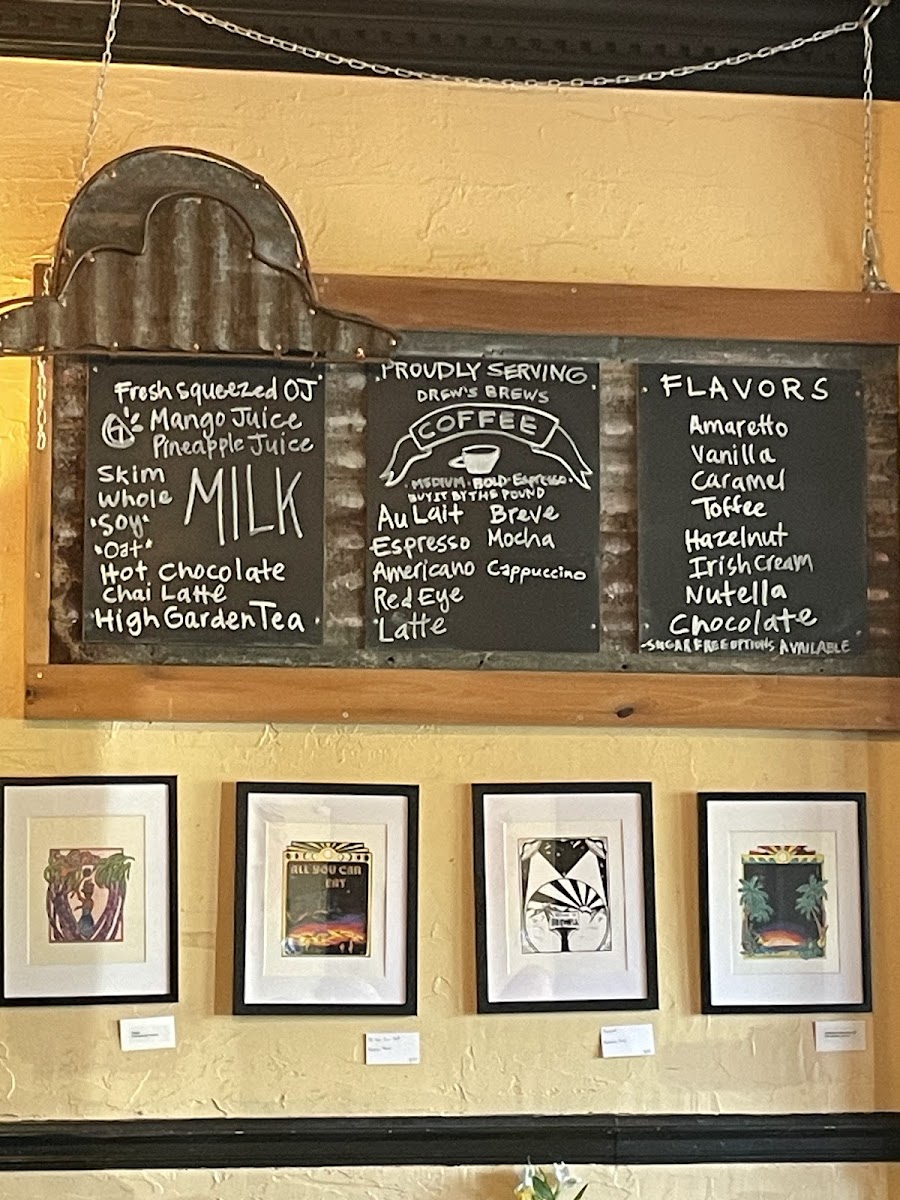 Fresh Squeezed OJ
Mango Juice
Pineapple Juice
Skim
Whole
"Soy"
"Oat"
MILK
Hot Chocolate
Chai Latte
High Garden Tea
PROUDLY SERVING
DREW'S BREWS
COFFEE
·MEDIUM·BOLD·Espresso·
BUY IT BY THE POUND
Au Lait Breve
Espresso Mocha
Americano Cappuccino
Red Eye
Latte
FLAVORS
Amaretto
Vanilla
Caramel
Toffee
Hazelnut
Irish Cream
Nutella
Chocolate
-SUGAR FREE OPTIONS AVAILABLE
ALL YOU CAN
EAT